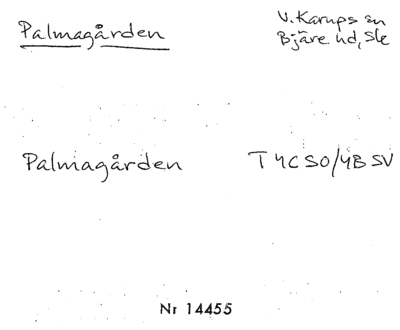 Palmagården
V. Karups sn
Bjäre hd, Ske
Palmagården
T 4C SO/4B SV
Nr 14455